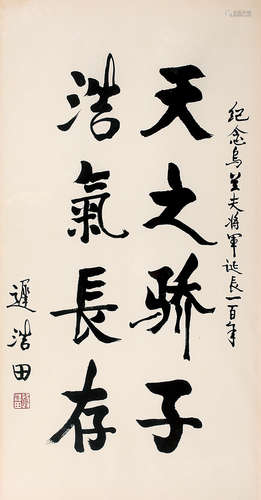 纪念乌兰夫将軍诞辰一百年
天之骄子
浩氣長存
遲浩田